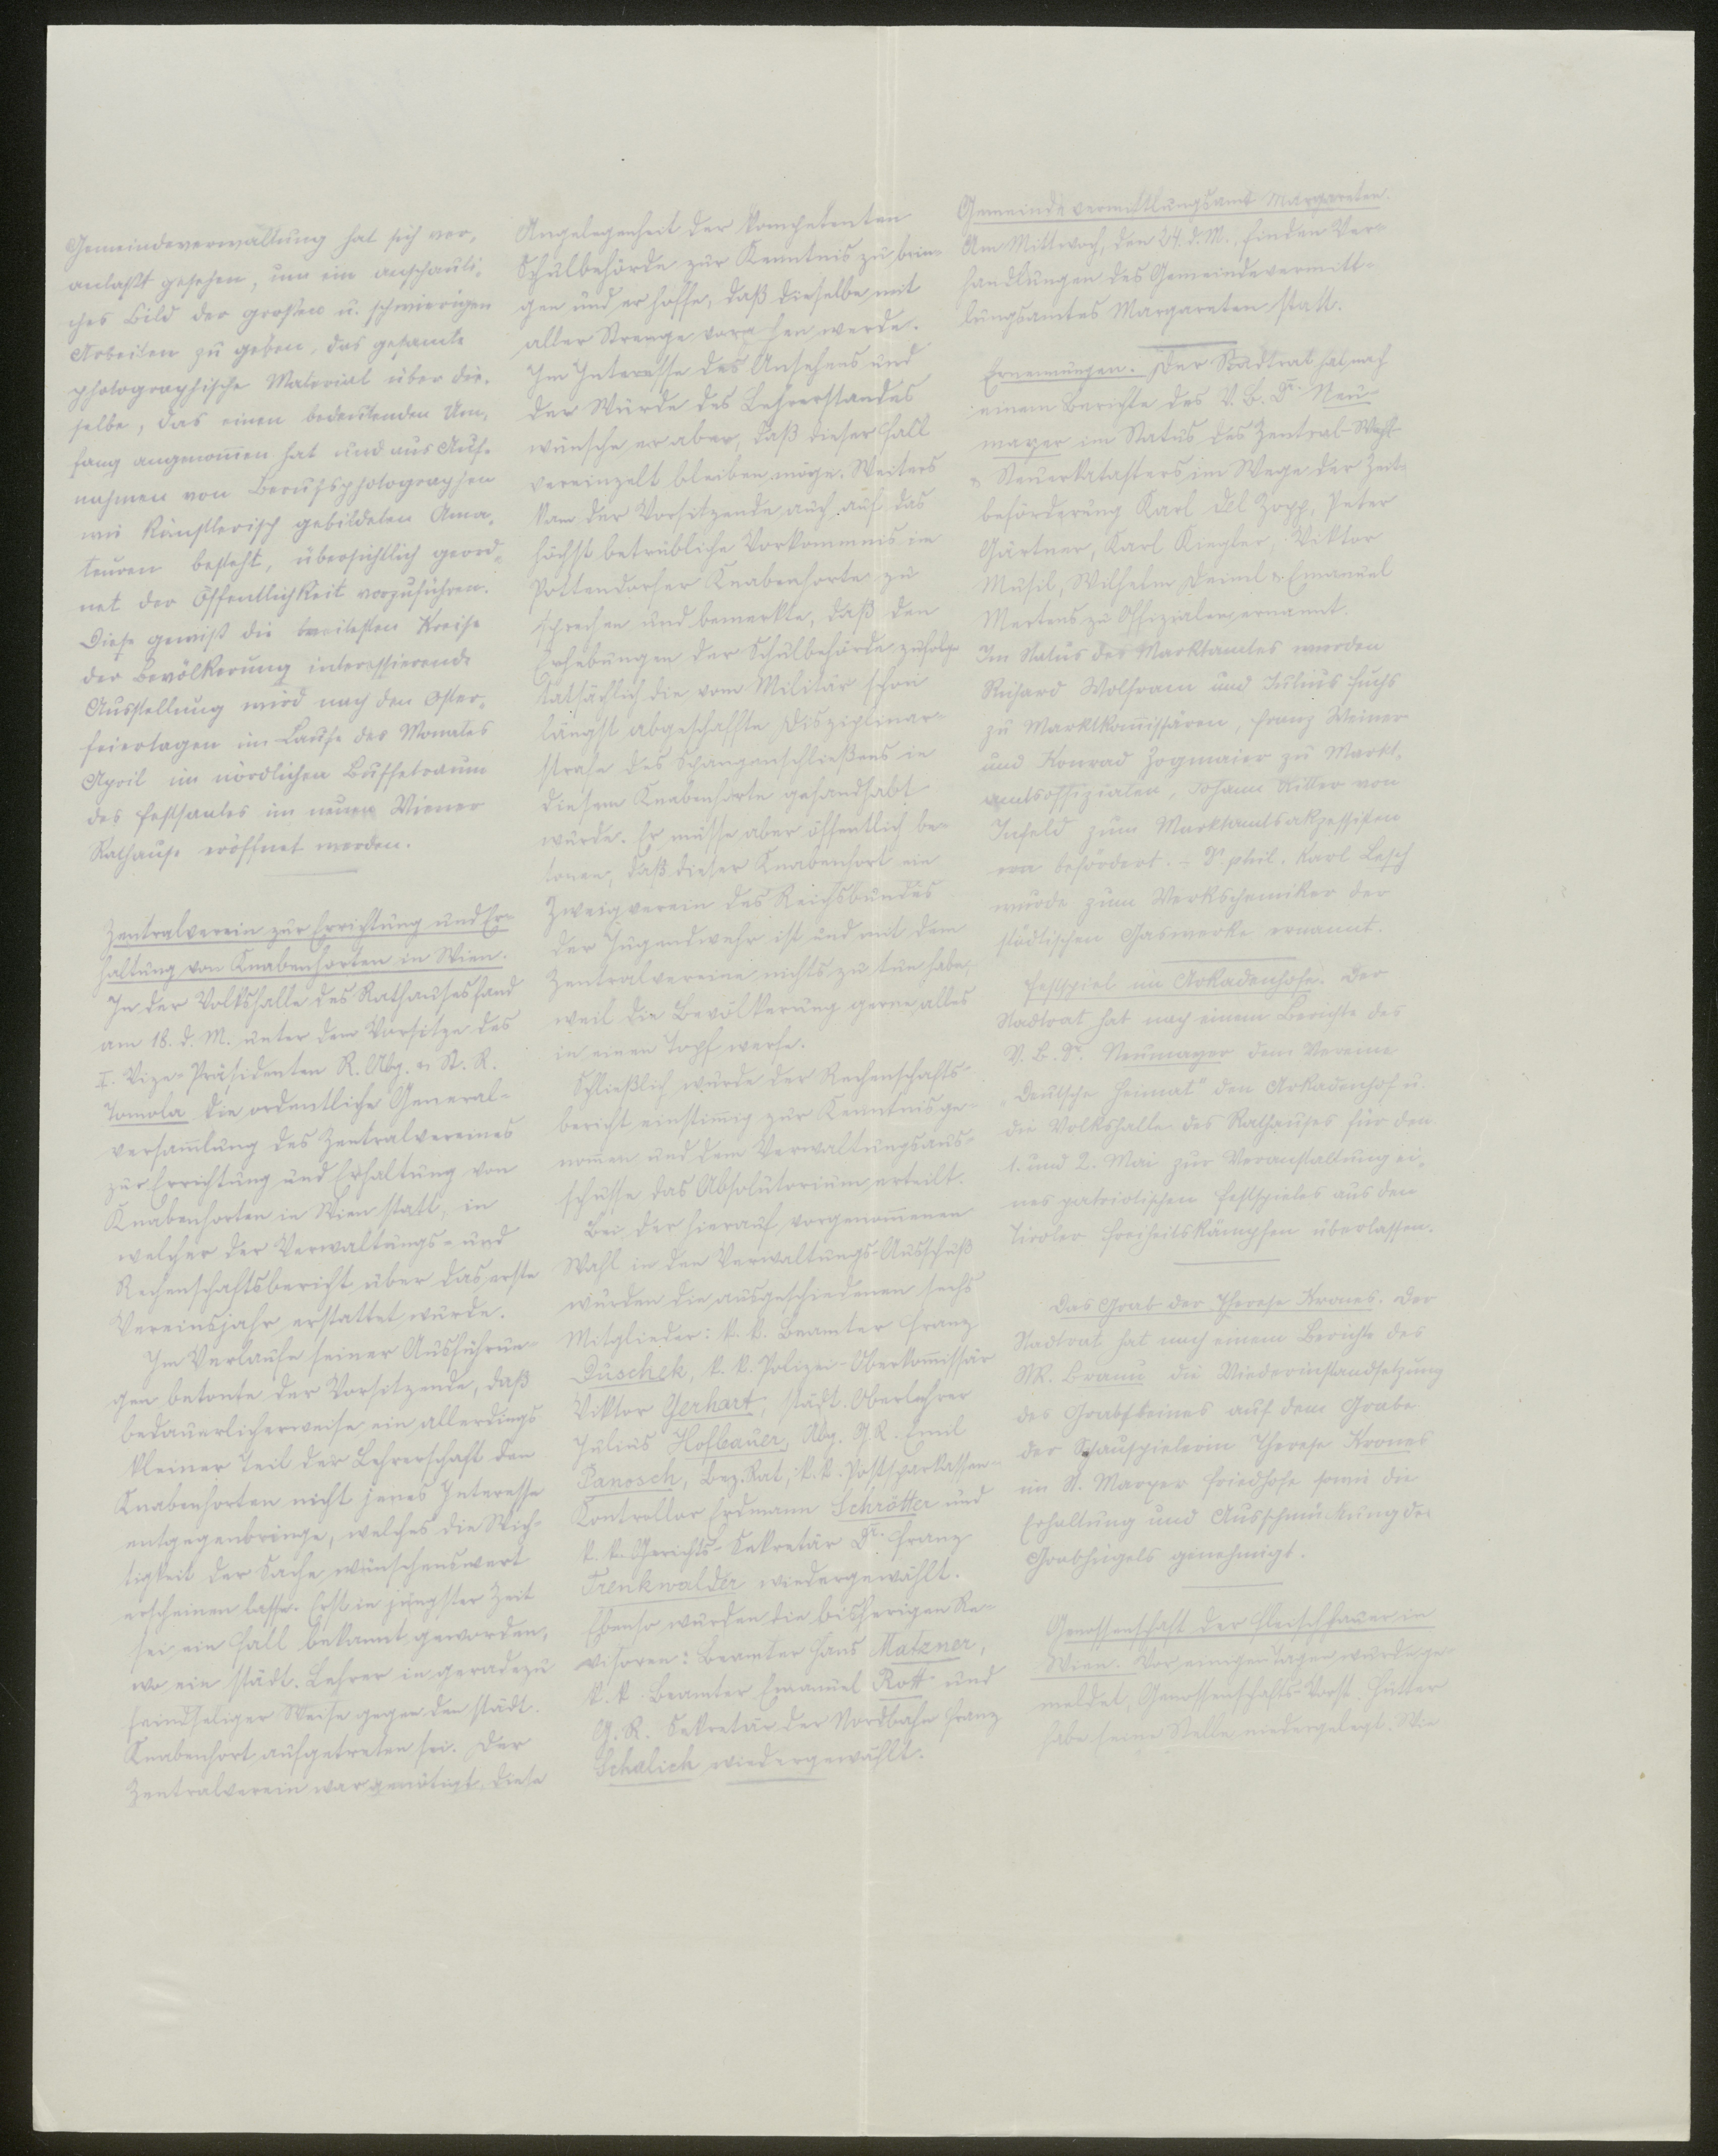 Gemeindeverwaltung hat sich ver-
anlaßt gesehen, um ein anschauli-
ches Bild der großen u. schwierigen
Arbeiten zu geben, das gesamte
photographische Material über die-
selbe, das einen bedeutenden Um-
fang angenommen hat und aus Auf-
nahmen von Berufsphotographen
wie künstlerisch gebildeten Ama-
teuren besteht, übersichtlich geord-
net der Öffentlichkeit vorzuführen.
Diese gewiß die breitesten Kreise
der Bevölkerung interessierende
Ausstellung wird nach den Oster-
feiertagen im Laufe des Monates
April im nördlichen Buffetraum
des Festsaales im neuen Wiener
Rathause eröffnet werden.
Zentralverein zur Errichtung und Er-
haltung von Knabenhorten in Wien.
In der Volkshalle des Rathauses fand
am 18. d. M. unter dem Vorsitze des
I. Vize-Präsidenten R. Abg. u. St. R.
Tomola die ordentliche General-
versammlung des Zentralvereines
zur Errichtung und Erhaltung von
Knabenhorten in Wien statt, in
welcher der Verwaltungs- und
Rechenschaftsbericht über das erste
Vereinsjahr erstattet wurde.
Im Verlaufe seiner Ausführun-
gen betonte der Vorsitzende, daß
bedauerlicherweise ein allerdings
kleiner Teil der Lehrerschaft den
Knabenhorten nicht jenes Interesse
entgegenbringe, welches die Wich-
tigkeit der Sache wünschenswert
erscheinen lasse. Erst in jüngster Zeit
sei ein Fall bekannt geworden,
wo ein städt. Lehrer in geradezu
feindseliger Weise gegen den städt.
Knabenhort aufgetreten sei. Der
Zentralverein war genötigt, diese
Angelegenheit der kompetenten
Schulbehörde zur Kenntnis zu brin-
gen und er hoffe, daß dieselbe mit
aller Strenge vorgehen werde.
Im Interesse des Ansehens und
der Würde des Lehrerstandes
wünsche er aber, daß dieser Fall
vereinzelt bleiben möge. Weiters
kam der Vorsitzende auch auf das
höchst betrübliche Vorkommnis im
Pottendorfer Knabenhorte zu
sprechen und bemerkte, daß den
Erhebungen der Schulbehörde zufolge
tatsächlich die vom Militär schon
längst abgeschaffte Disziplinar-
strafe des Spangenschließens in
diesem Knabenhorte gehandhabt
wurde. Er müsse aber öffentlich be-
tonen, daß dieser Knabenhort ein
Zweigverein des Reichsbundes
der Jugendwehr ist und mit dem
Zentralvereine nichts zu tun habe,
weil die Bevölkerung gerne alles
in einen Topf werfe.
Schließlich wurde der Rechenschafts-
bericht einstimmig zur Kenntnis ge-
nommen und dem Verwaltungsaus-
schusse das Absolutorium erteilt.
Bei der hierauf vorgenommenen
Wahl in den Verwaltungs-Ausschuß
wurden die ausgeschiedenen sechs
Mitglieder: k. k. Beamter Franz
Duschek, k. k. Polizei-Oberkommissär
Viktor Gerhart, städt. Oberlehrer
Julius Hofbauer, Abg. G.R. Emil
Panosch, Bez. Rat, k. k. Postsparkassen-
Kontrollor Erdmann Schrötter und
k. k. Gerichts-Sekretär Dr. Franz
Trenkwalder wiedergewählt.
Ebenso wurden die bisherigen Re-
visoren: Beamter Hans Matzner,
k. k. Beamter Emanuel Rott und
G. R. Sekretär der Nordbahn Franz
Schalich wiedergewählt.
Gemeindevermittlungsamt Margareten.
Am Mittwoch, den 24. d. M., finden Ver-
handlungen des Gemeindevermitt-
lungsamtes Margareten statt.
Ernennungen. Der Stadtrat hat nach
einem Berichte des V. B. Dr. Neu-
mayer im Status des Zentral-Wahl-
u. Steuerkatasters im Wege der Zeit-
beförderung Karl del Zopp, Peter
Gärtner, Karl Kiegler, Viktor
Musil, Wilhelm Deiml u. Emanuel
Mertens zu Offizialen ernannt.
Im Status des Marktamtes wurden
Richard Wolfram und Julius Fuchs
zu Marktkommissären, Franz Weiner
und Konrad Zogmaier zu Markt-
amtsoffizialen, Johann Ritter von
Infeld zum Marktamtsakzessisten
befördert. - Dr. phil. Karl Lesch
wurde zum Werkschemiker der
städtischen Gaswerke ernannt.
Festspiel im Arkadenhofe. Der
Stadtrat hat nach einem Berichte des
V. B. Dr. Neumayer dem Vereine
„Deutsche Heimat" den Arkadenhof u.
die Volkshalle des Rathauses für den
1. und 2. Mai zur Veranstaltung ei-
nes patriotischen Festspieles aus den
Tiroler Freiheitskämpfen überlassen.
Das Grab der Therese Krones. Der
Stadtrat hat nach einem Berichte des
StR. Braun die Wiederinstandsetzung
des Grabsteines auf dem Grabe
der Schauspielerin Therese Krones
im St. Marxer Friedhofe sowie die
Erhaltung und Ausschmückung des
Grabhügels genehmigt.
Genossenschaft der Fleischhauer in
Wien. Vor einigen Tagen wurde ge-
meldet, Genossenschafts-Vorst. Hütter
habe seine Stelle niedergelegt. Wie